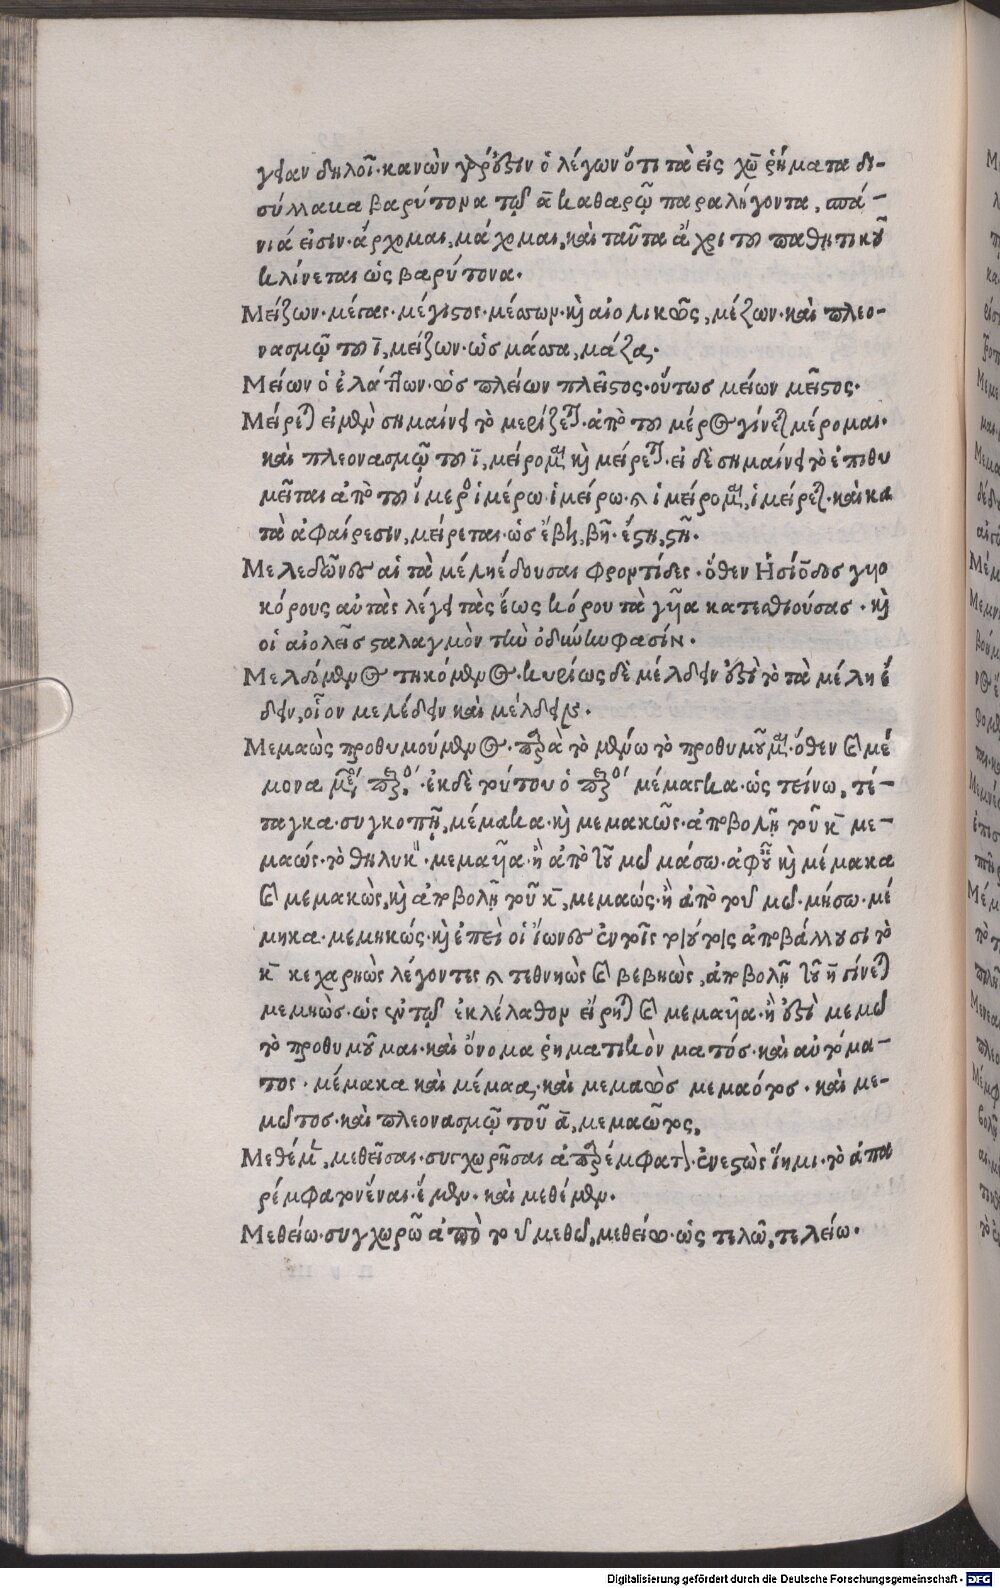 γειαν δηλοῖ· κανὼν γάρ ἐστιν ὁ λέγων ὅτι τὰ εἰς χω ῥήματα δι-
σύλλαβα βαρύτονα τῷ α καθαρῷ παραλήγοντα, σπά-
νιά εἰσιν· ἄρχομαι, μάχομαι, καὶ ταῦτα ἄχρι τοῦ παθητικοῦ
κλίνεται ὡς βαρύτονα.
Μείζων· μέγας· μέγιστος· μέσσων· καὶ αἰολικῶς, μέζων· καὶ πλεο-
νασμῷ τοῦ ῑ, μείζων· ὡς μάσσα, μάζα.
Μείων ὁ ἐλάττων· ὡς πλείων πλεῖστος· οὕτως μείων μεῖστος.
Μείρεται εἰ μὲν σημαίνει τὸ μερίζεται· ἀπὸ τοῦ μέρος γίνεται μέρομαι·
καὶ πλεονασμῷ τοῦ ῑ, μείρομαι καὶ μείρεται· εἰ δὲ σημαίνει τὸ ἐπιθυ
μεῖται ἀπὸ τοῦ ἵμερος ἱμέρω· ἱμείρω· καὶ ἱμείρομαι, ἱμείρεται· καὶ κα
τὰ ἀφαίρεσιν, μείρεται· ὡς ἔβη, βῆ· ἔστη, στῆ.
Μελεδῶνες αἱ τὰ μέλη ἔδουσαι φροντίδες· ὅθεν Ἡσίοδος γυιο
κόρους αὐτὰς λέγει τὰς ἕως κόρου τὰ γυῖα κατεσθιούσας· καὶ
οἱ αἰολεῖς σταλαγμὸν τὴν ὀδύνην φασίν.
Μελδόμενος τηκόμενος· κυρίως δὲ μέλδειν ἐστὶ τὸ τὰ μέλη ἔ
δειν, οἷον μελέδειν καὶ μέλδειν.
Μεμαὼς προθυμούμενος· παρὰ τὸ μενύω τὸ προθυμοῦμαι· ὅθεν καὶ μέ
μονα· ἐκ δὲ τούτου ὁ μέμαγκα· ὡς τείνω, τέ-
ταγκα· συγκοπῇ, μέμακα· καὶ μεμακῶς· ἀποβολῇ τοῦ κ με-
μαώς· τὸ θηλυκὸν· μεμαυῖα· ἢ ἀπὸ τοῦ μῶ μάσω· ἀφ' οὗ καὶ μέμακα
καὶ μεμακὼς, καὶ ἀποβολῇ τοῦ κ, μεμαώς· ἢ ἀπὸ τοῦ μῶ· μήσω· μέ
μηκα· μεμηκώς· καὶ ἐπεὶ οἱ ἴωνες ἐν τοῖς τοιούτοις ἀποβάλλουσι τὸ
κ κεχαρηὼς λέγοντες καὶ τεθνηὼς καὶ βεβηὼς, ἀποβολῇ τοῦ η γίνεται
μεμηὼς· ὡς ἐν τῷ ἐκλέλαθον εἴρηται καὶ μεμαυῖα· ἢ ἐστὶ μεμῶ
τὸ προθυμοῦμαι· καὶ ὄνομα ῥηματικὸν ματός· καὶ αὐτόμα-
τος· μέμακα καὶ μέμαα, καὶ μεμαὼς μεμαότος· καὶ με-
μῶτος· καὶ πλεονασμῷ τοῦ α, μεμαῶτος,
Μεθέμεν, μεθεῖσαι· συγχωρῆσαι ἀπαρέμφατον· ἐνεστὼς ἵημι· τὸ ἀπα
ρέμφατον εἶναι· ἕμεν· καὶ μεθέμεν.
Μεθείω· συγχωρῶ ἀπὸ τοῦ μεθῶ, μεθείω· ὡς τελῶ, τελείω.
Digitalisierung gefördert durch die Deutsche Forschungsgemeinschaft - DFG